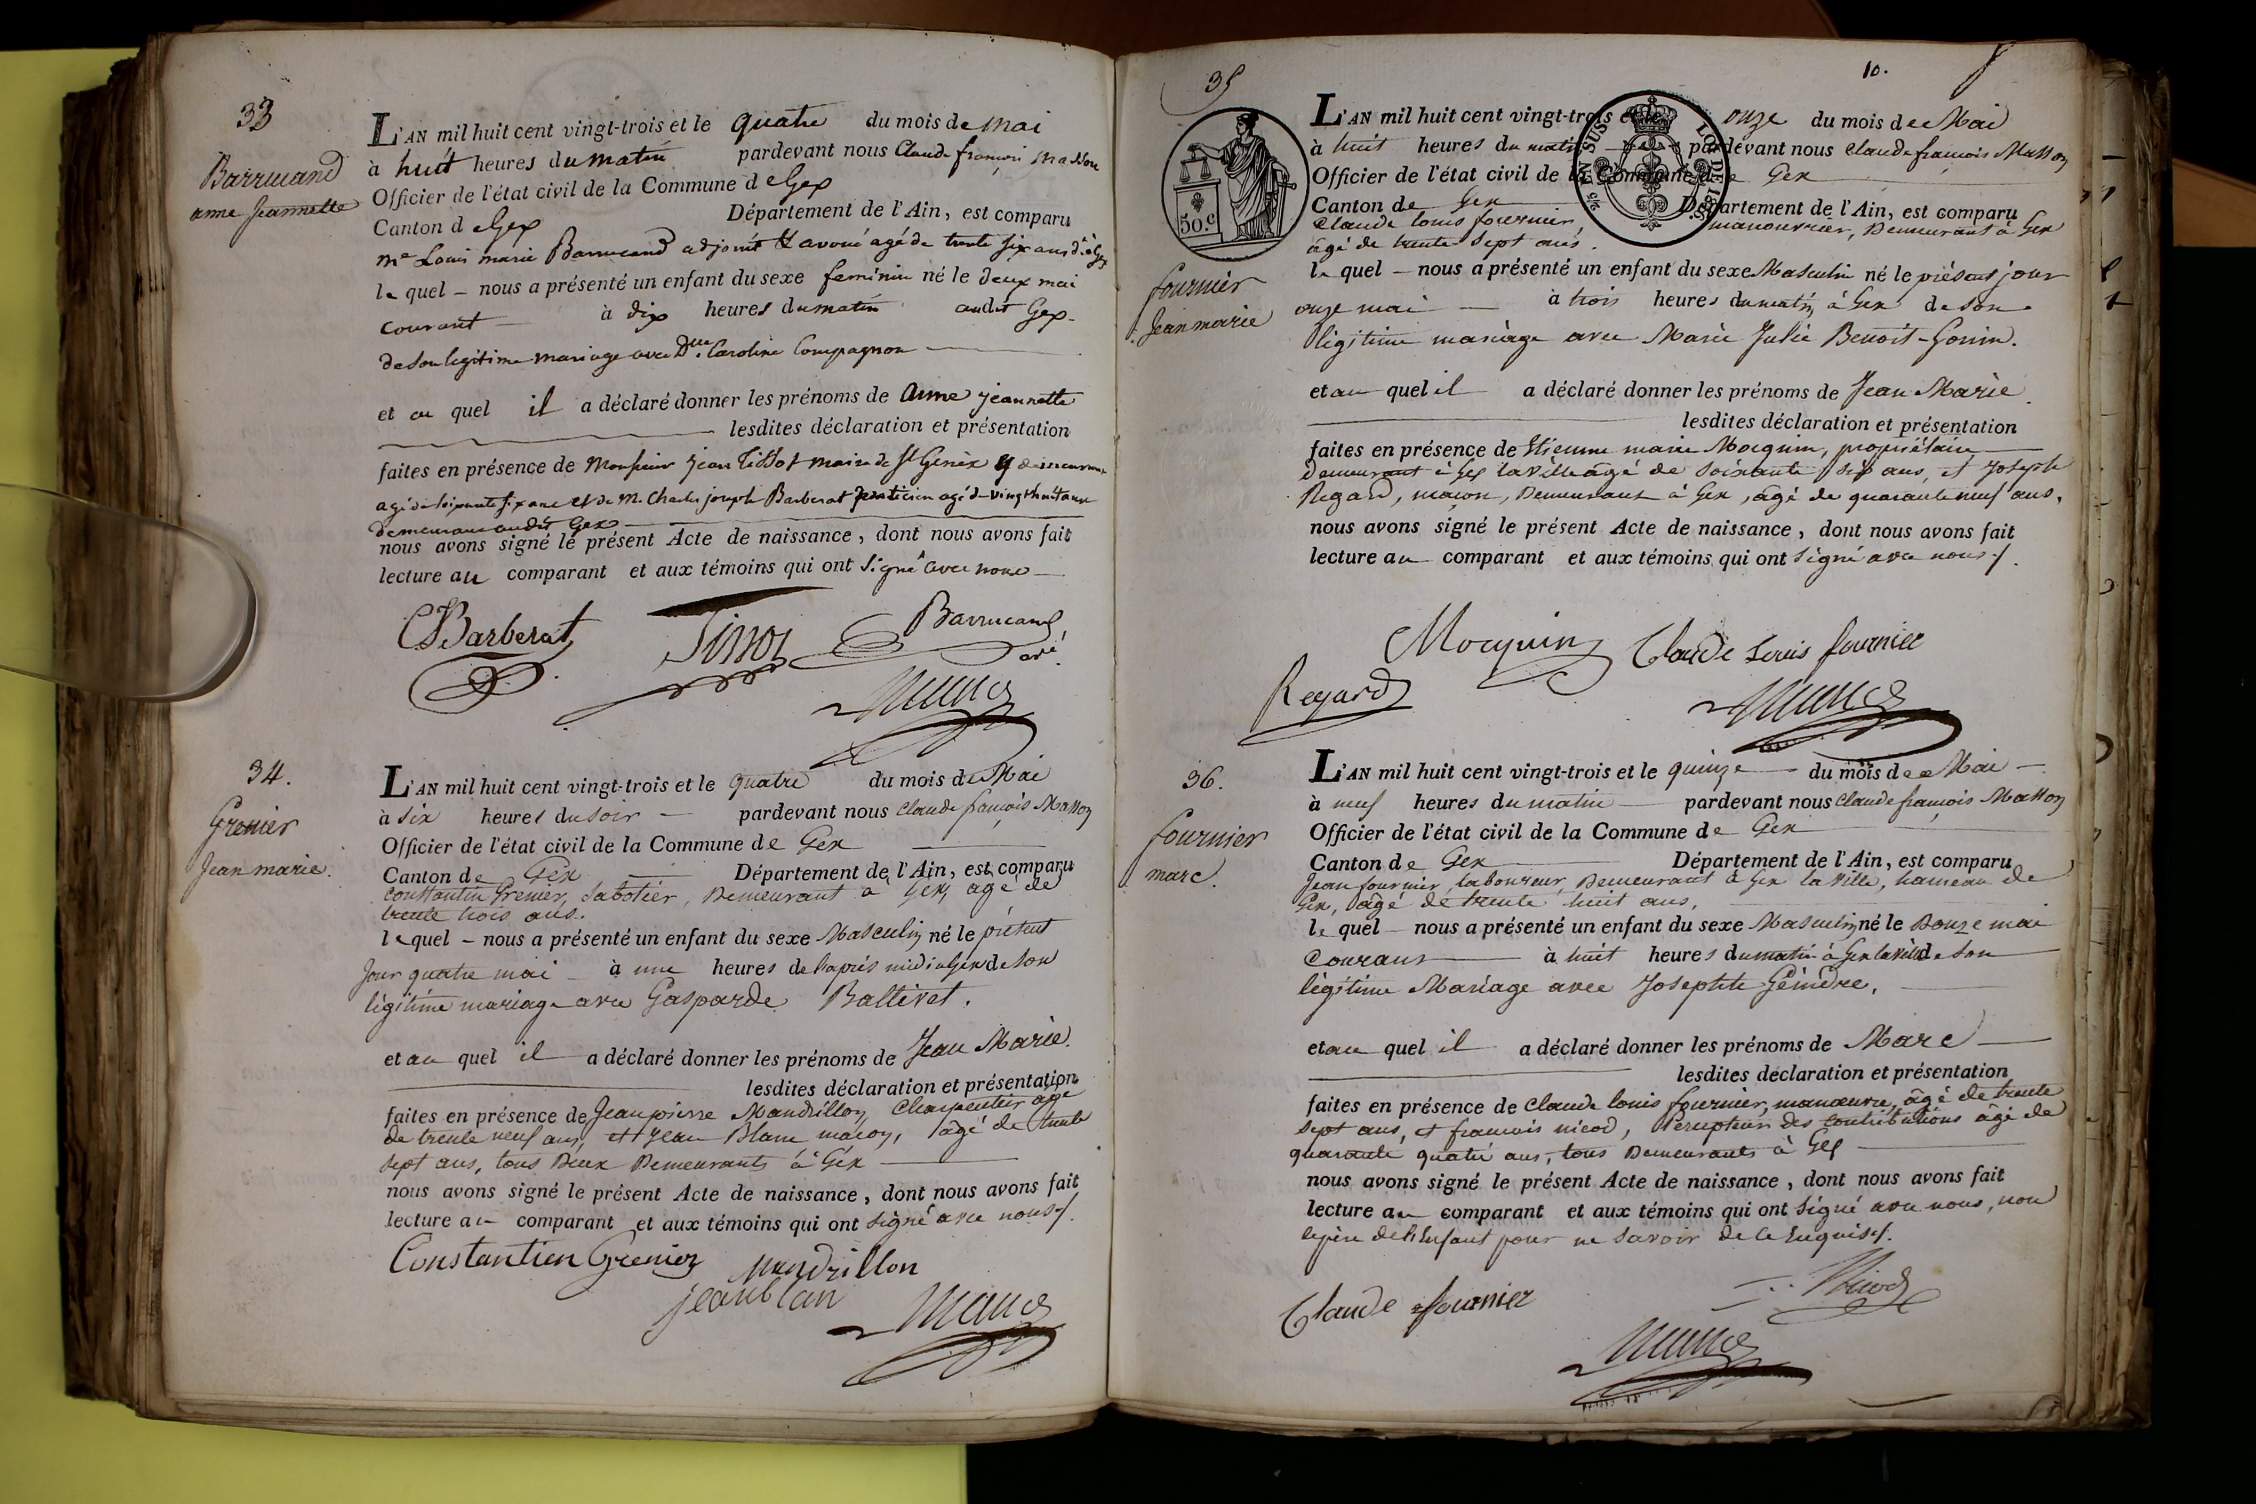 33
Barrucand
anne Jeannette
L'AN mil huit cent vingt-trois et le quatre du mois de mai
à huit heures du matin pardevant nous Claude françois Masson
Officier de l'état civil de la Commune de Gex
Canton de Gex Département de l'Ain, est comparu
Me Louis marie Barrucand adjoint & avoué agé de trente six ans dt à Gex
le quel – nous a présenté un enfant du sexe feminin né le deux mai
courant à dix heures du matin audit Gex.
de son legitime mariage avec Dlle Caroline Compagnon
et au quel il a déclaré donner les prénoms de anne jeannette
lesdites déclaration et présentation
faites en présence de Monsieur jean Tissot maire de St Genix y demeurant
agé de soixante six ans et de M. Charles joseph Barberat praticien agé de vingt huit ans
demeurant audit Gex
nous avons signé le présent Acte de naissance, dont nous avons fait
lecture au comparant et aux témoins qui ont signé avec nous
CJBarberat Tissot Barrucand
avé.
34.
Grenier
Jean marie.
L'AN mil huit cent vingt-trois et le quatre du mois de Mai
à six heures du soir pardevant nous Claude françois Masson
Officier de l'état civil de la Commune de Gex
Canton de Gex Département de l'Ain, est comparu
Constantin Grenier, sabotier, Demeurant à Gex, agé de
trente trois ans.
le quel – nous a présenté un enfant du sexe Masculin né le présent
Jour quatre mai à une heures de l'après midi à Gex de son
légitime mariage avec Gasparde Baltivet.
et au quel il a déclaré donner les prénoms de Jean Marie.
lesdites déclaration et présentation
faites en présence de Jean pierre Mandrillon, Charpentier agé
de trente neuf ans, et Jean Blanc maçon, âgé de trente
sept ans, tous Deux Demeurants à Gex
nous avons signé le présent Acte de naissance, dont nous avons fait
lecture au comparant et aux témoins qui ont signé avec nous /.
Constantien Grenier Mandrillon
jean blan
10.
35
50.c
fournier
Jean marie
L'AN mil huit cent vingt-trois et le onze du mois de Mai
à huit heures du matin pardevant nous Claude françois Masson
Officier de l'état civil de la Commune de Gex
Canton de Gex Département de l'Ain, est comparu
Claude louis fournier, manouvrier, Demeurant à Gex
âgé de trente sept ans.
le quel – nous a présenté un enfant du sexe Masculin né le présent jour
onze mai à trois heures du matin à Gex de son
légitime mariage avec Marie Julie Benoit-Gonin.
et au quel il a déclaré donner les prénoms de Jean Marie.
lesdites déclaration et présentation
faites en présence de Etienne marie Mocquin, propriétaire
Demeurant à Gex la ville agé de soixante six ans, et Joseph
Regard, maçon, Demeurant à Gex, âgé de quarante neuf ans.
nous avons signé le présent Acte de naissance, dont nous avons fait
lecture au comparant et aux témoins qui ont signé avec nous /.
Mocquin Claude Louis fournier
Regard
36.
fournier
marc.
L'AN mil huit cent vingt-trois et le quinze du mois de Mai
à neuf heures du matin pardevant nous Claude françois Masson
Officier de l'état civil de la Commune de Gex
Canton de Gex Département de l'Ain, est comparu
Jean fournier, laboureur, Demeurant à Gex la ville, hameau de
Gex, âgé de trente huit ans,
le quel – nous a présenté un enfant du sexe Masculin né le Douze mai
Courant à huit heures du matin à Gex la ville de son
légitime Mariage avec Josephte Génèdre.
et au quel il a déclaré donner les prénoms de Marc
lesdites déclaration et présentation
faites en présence de Claude louis fournier, manœuvre, âgé de trente
sept ans, et françois nicod, Percepteur des Contributions âgé de
quarante quatre ans, tous Demeurants à Gex
nous avons signé le présent Acte de naissance, dont nous avons fait
lecture au comparant et aux témoins qui ont signé avec nous, non
le père de l'Enfant pour ne savoir de ce Enquis /.
Claude fournier Nicod